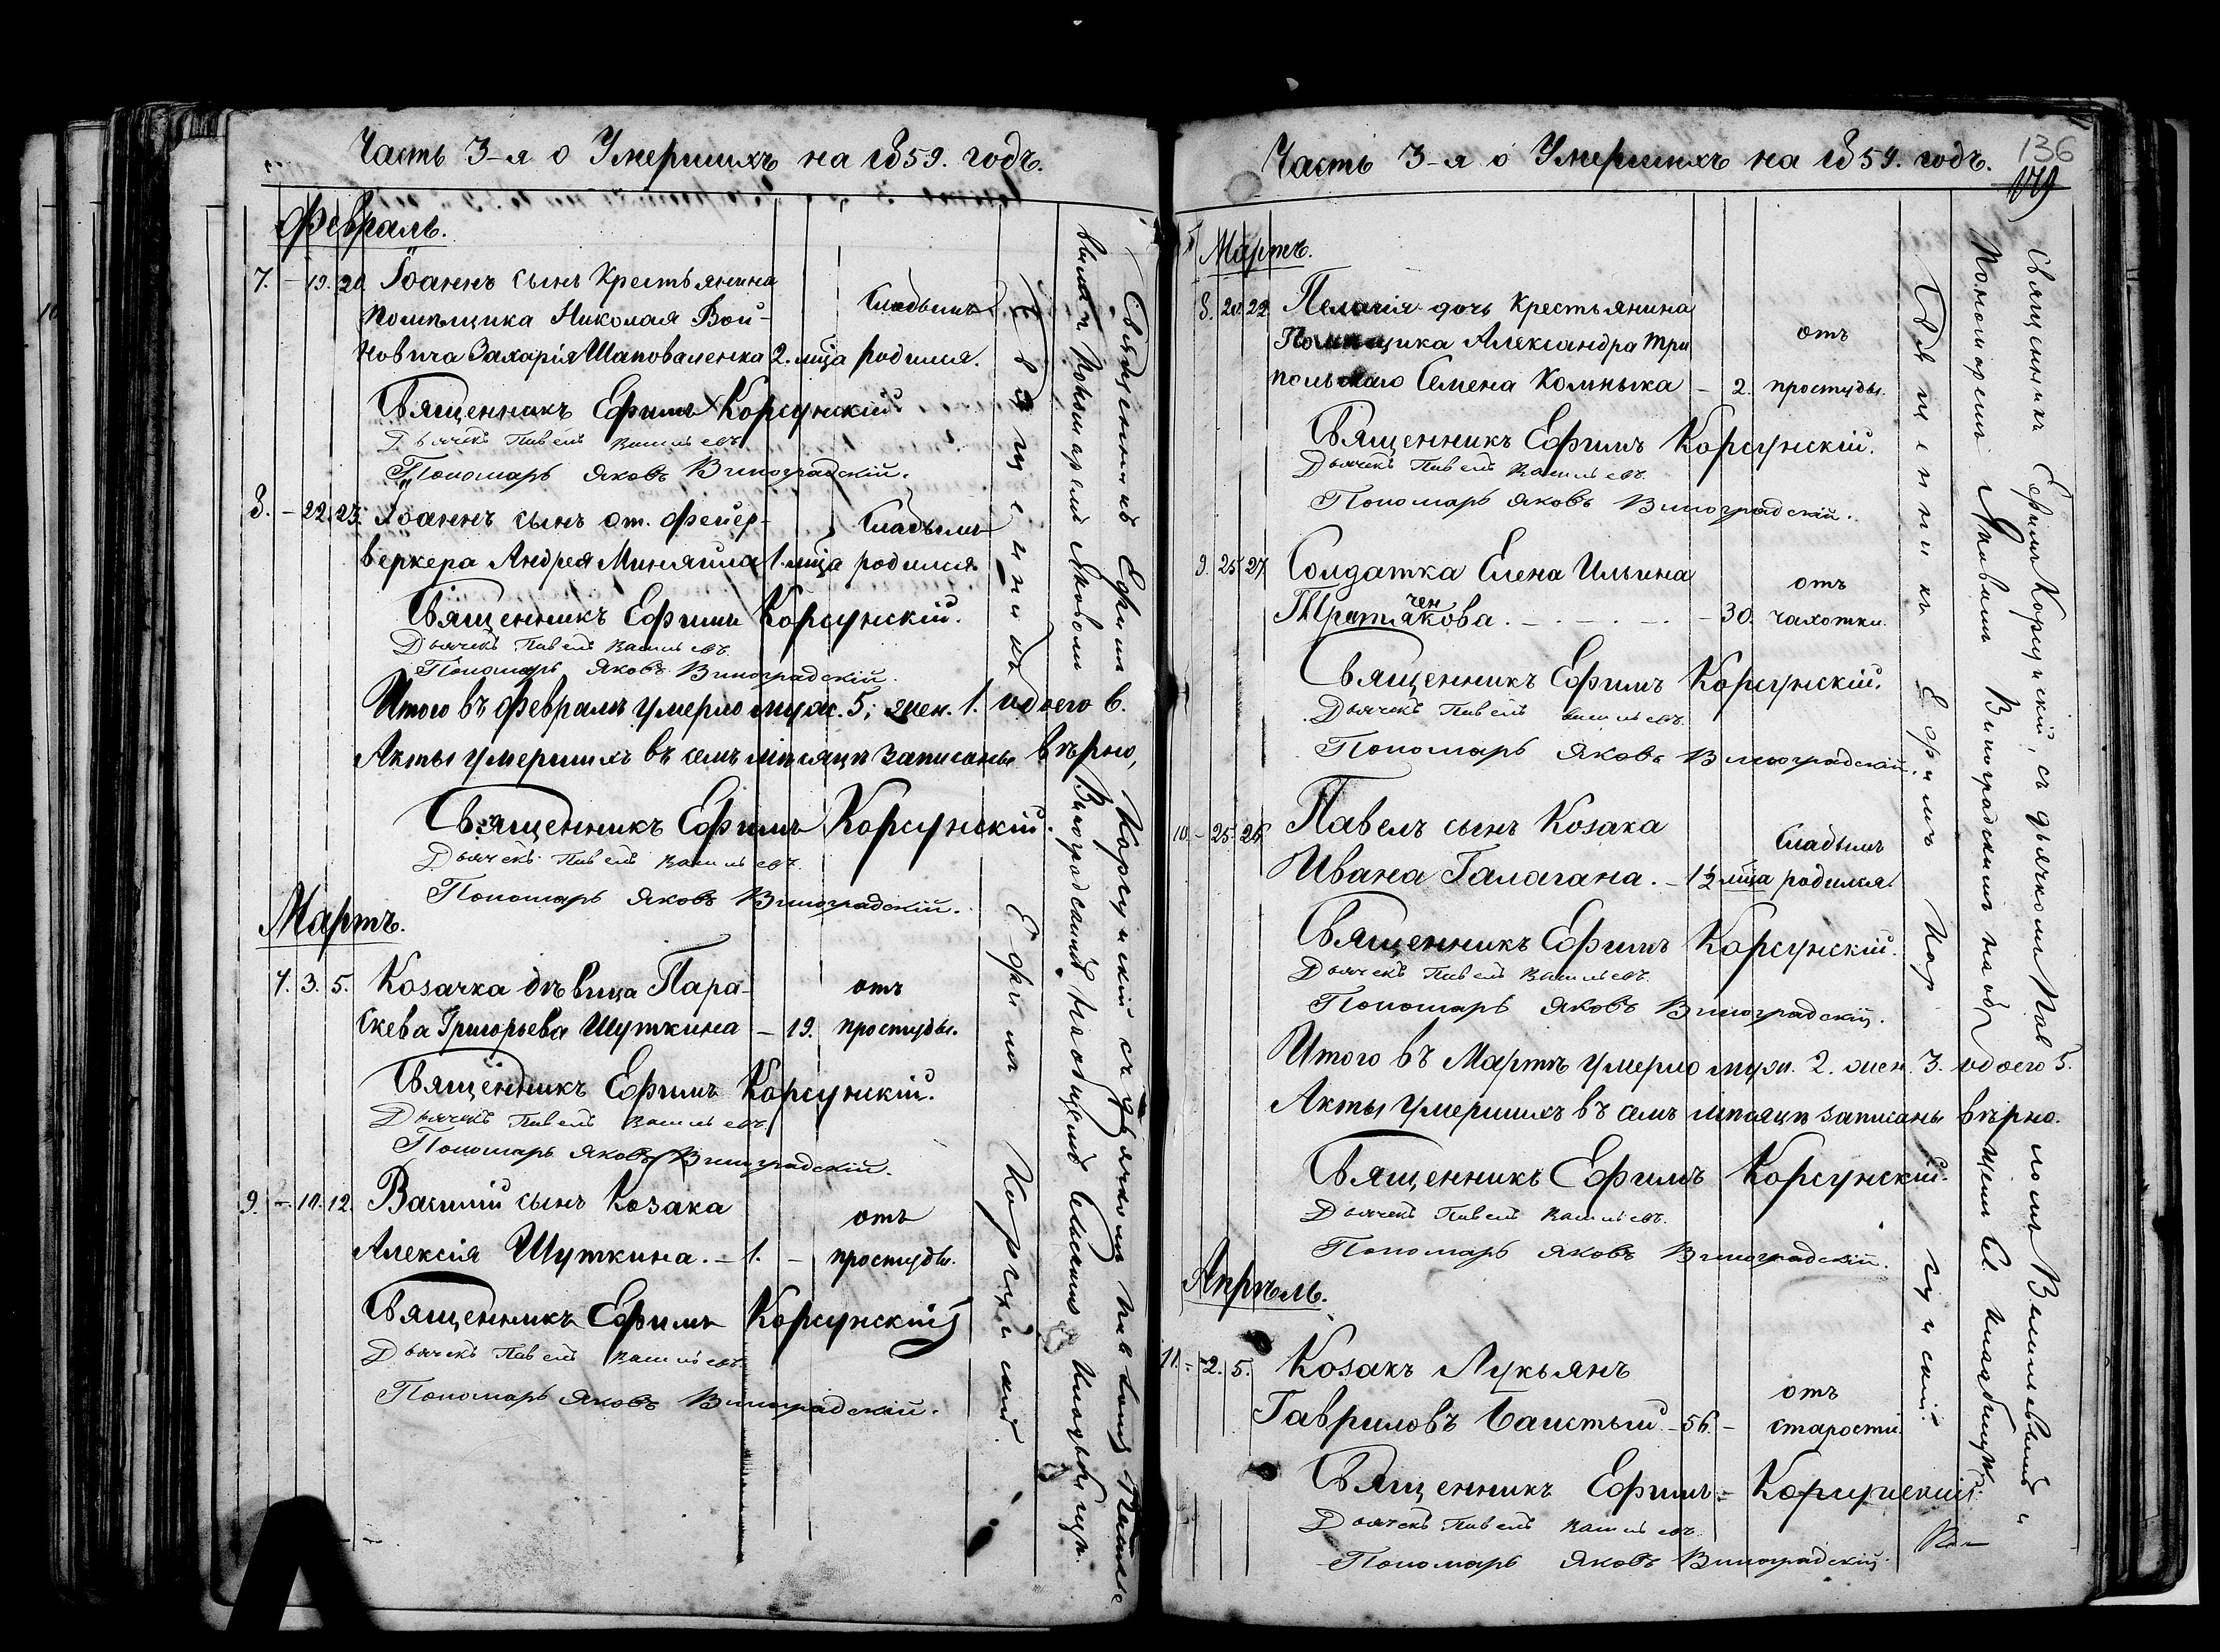 Часть 3-я о Умершихъ на 1859. годъ.
Февраль.
7. – 19. 20. Іоаннъ сынъ Крестьянина
помѣщика Николая Вой-
новича Захарія Шаповаленка 2. мца родился.
Слабымъ
Священникъ Ефимъ Корсунскій.
Дьячекъ Павелъ Васильевъ
Пономарь Яковъ Виноградскій.
8. – 22. 23. Іоаннъ сынъ от. Фейер- Слабымъ
веркера Андрея Миняйла 1. мца родился
Священникъ Ефимъ Корсунскій.
Дьячекъ Павелъ Васильевъ.
Пономарь Яковъ Виноградскій.
Итого въ Февралѣ умерло муж. 5; жен. 1. обоего 6.
Акты умершихъ въ семъ мѣсяцѣ записаны вѣрно,
Священникъ Ефимъ Корсунскій.
Дьячекъ Павелъ Васильевъ.
Пономарь Яковъ Виноградскій.
Мартъ.
7. 3. 5. Козачка дѣвица Пара- отъ
скева Григорьева Шуткина – 19. простуды.
Священникъ Ефимъ Корсунскій.
Дьячекъ Павелъ Васильевъ
Пономарь Яковъ Виноградскій.
9. – 10. 12. Василій сынъ Козака отъ
Алексія Шуткина. – 1. – простуды.
Священникъ Ефимъ Корсунскій
Дьячекъ Павелъ Васильевъ
Пономарь Яковъ Виноградскій.
Священникъ Ефимъ Корсунскій
Священникъ Ефимъ Корсунскій съ дьячкомъ Павломъ
Пономаремъ Яковомъ Виноградскимъ
Часть 3-я о Умершихъ на 1859. годъ.
136
179
Мартъ.
8. 20. 22. Пелагія дочь Крестьянина
Помѣщика Александра Три отъ
польскаго Семена Колныка – 2. простуды.
Священникъ Ефимъ Корсунскій.
Дьячекъ Павелъ Васильевъ.
Пономарь Яковъ Виноградскій.
9. 25. 27. Солдатка Елена Ильина отъ
чен
– 30. чахотки.
Священникъ Ефимъ Корсунскій.
Дьячекъ Павелъ Васильевъ.
Пономарь Яковъ Виноградскій.
10. – 25. 26. Павелъ сынъ Козака Слабымъ
Ивана Галагана. – 1½ мца родился.
Священникъ Ефимъ Корсунскій.
Дьячекъ Павелъ Васильевъ.
Пономарь Яковъ Виноградскій.
Итого въ Мартѣ умерло муж. 2. жен. 3. обоего 5.
Акты умершихъ въ семъ мѣсяцѣ записаны вѣрно.
Священникъ Ефимъ Корсунскій.
Дьячекъ Павелъ Васильевъ.
Пономарь Яковъ Виноградскій.
Апрѣль.
11. – 2. 5. Козакъ Лукьянъ отъ
Гавриловъ – 56. – старости.
Священникъ Ефимъ Корсунскій
Дьячекъ Павелъ Васильевъ.
Пономарь Яковъ Виноградскій.
Священникъ Ефимъ Корсунскій.
Пономаремъ Виноградскимъ
Священникъ Ефимъ Корсунскій, съ дьячкомъ Павломъ Васильевымъ и